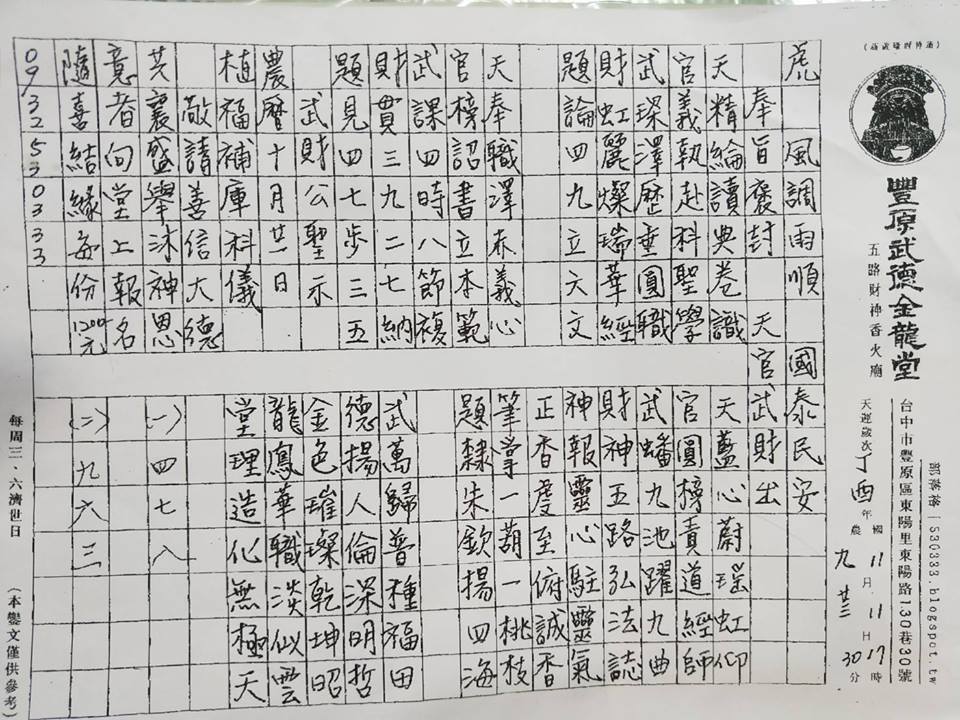 豐原武德金龍堂
五路財神香火廟
部落格 1530333.blogspot.tw
台中市豐原區東陽里東陽路130巷30號
天運歲次丁酉年 國 11月11日17時30分
農 九 廿三
虎 風調雨順 國泰民安
奉旨褒封 天官武財出
天精綸讀典卷識
官義執赴科聖學
武琛澤歷垂圓職
財虹麗燦瑞華經
題論四九立六文
天奉職澤赤義心
官榜詔書立本範
武課四時八節複
財貫三九二七納
題見四七步三五
武財公聖示
農曆十月廿一日
植福補庫科儀
敬請善信大德
共襄盛舉沐神恩
意者向堂上報名
隨喜結緣每份1200元
0932530333
天蓋心蔚瑶虹仰
官圓榜責道經師
武蟠九池躍九曲
財神五路弘法誌
神報靈心駐靈氣
正香虔至俯誠香
筆掌一葫一桃枝
題隸朱欽揚四海
武萬歸普種福田
德揚人倫深明哲
金色璀璨乾坤昭
龍鳳華職淡似雲
堂理造化無極天
(一)四七八
(二)九六三
每周三、六濟世日
(本鸞文僅供參考)